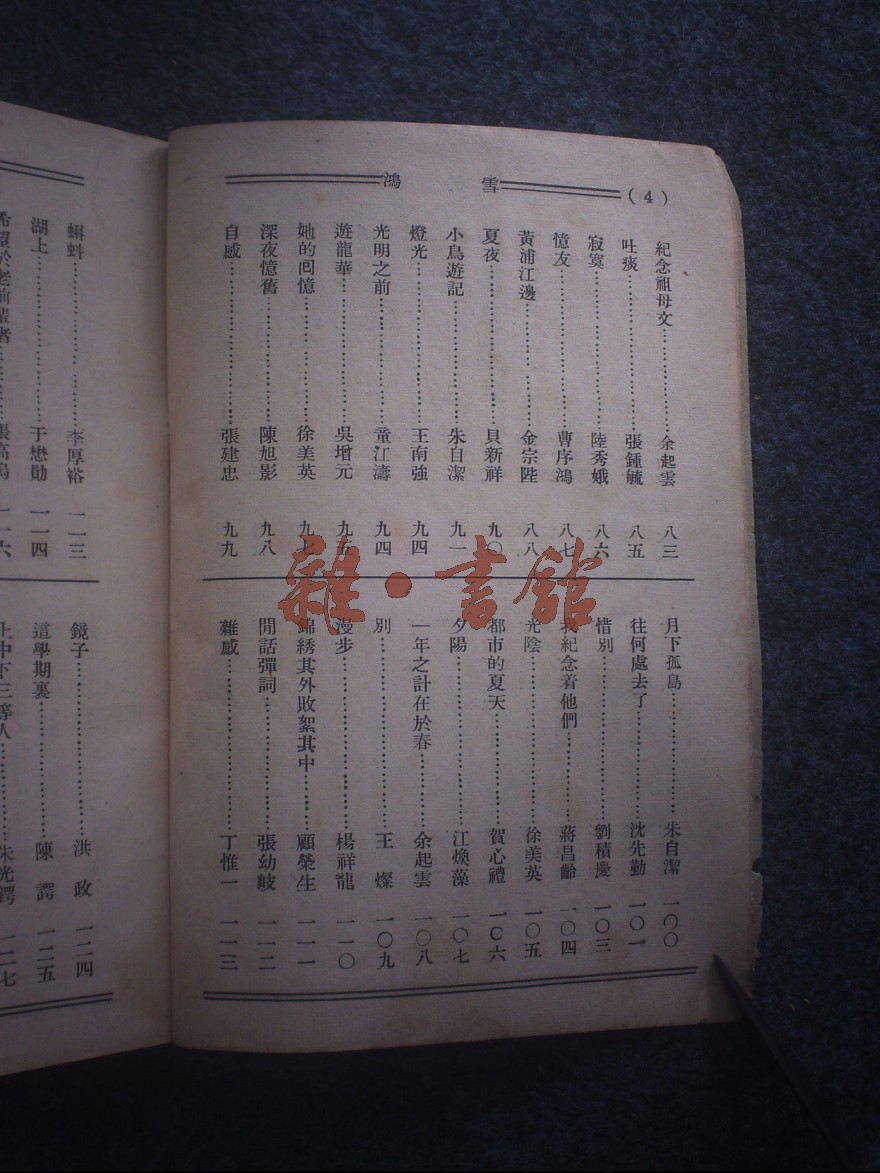 雪鴻
(4)
紀念祖母文 余起雲 八三
吐痰 張鍾毓 八五
寂寞 陸秀娥 八六
憶友 曹序鴻 八七
黃浦江邊 金宗陛 八八
夏夜 貝新祥 九〇
小鳥遊記 朱自潔 九一
燈光 王南強 九四
光明之前 童江濤 九四
遊龍華 吳增元 九五
她的囘憶 徐美英 九七
深夜憶舊 陳旭影 九八
自感 張建忠 九九
月下孤島 朱自潔 一〇〇
往何處去了 沈先勤 一〇一
惜別 劉積慶 一〇三
我紀念着他們 蔣昌齡 一〇四
光陰 徐美英 一〇五
都市的夏天 賀心禮 一〇六
夕陽 江煥藻 一〇七
一年之計在於春 余起雲 一〇八
別 王燦 一〇九
漫步 楊祥龍 一一〇
錦綉其外敗絮其中 顧榮生 一一一
閒話彈詞 張幼岐 一一二
雜感 丁惟一 一一三
蝌蚪 李厚裕 一一三
湖上 于懋勛 一一四
希望於老前輩者 一一六
鏡子 洪政 一二四
這學期裏 陳諤 一二五
上中下三等人 朱光鍔 一二七
雜·書館